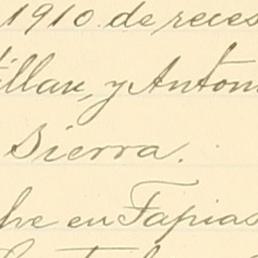 1910. de reces
illan, y Anton
Sierra.
he en Tapias